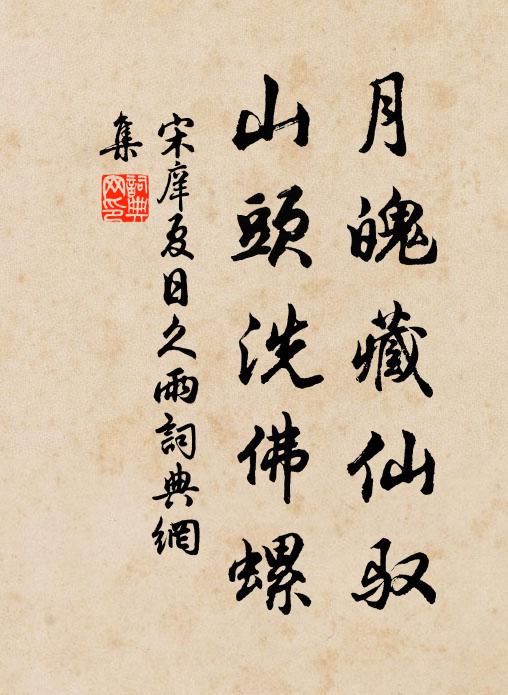 月魄藏仙馭
山頭洗佛螺
宋庠夏日久雨詞典網
集
詞典
网印